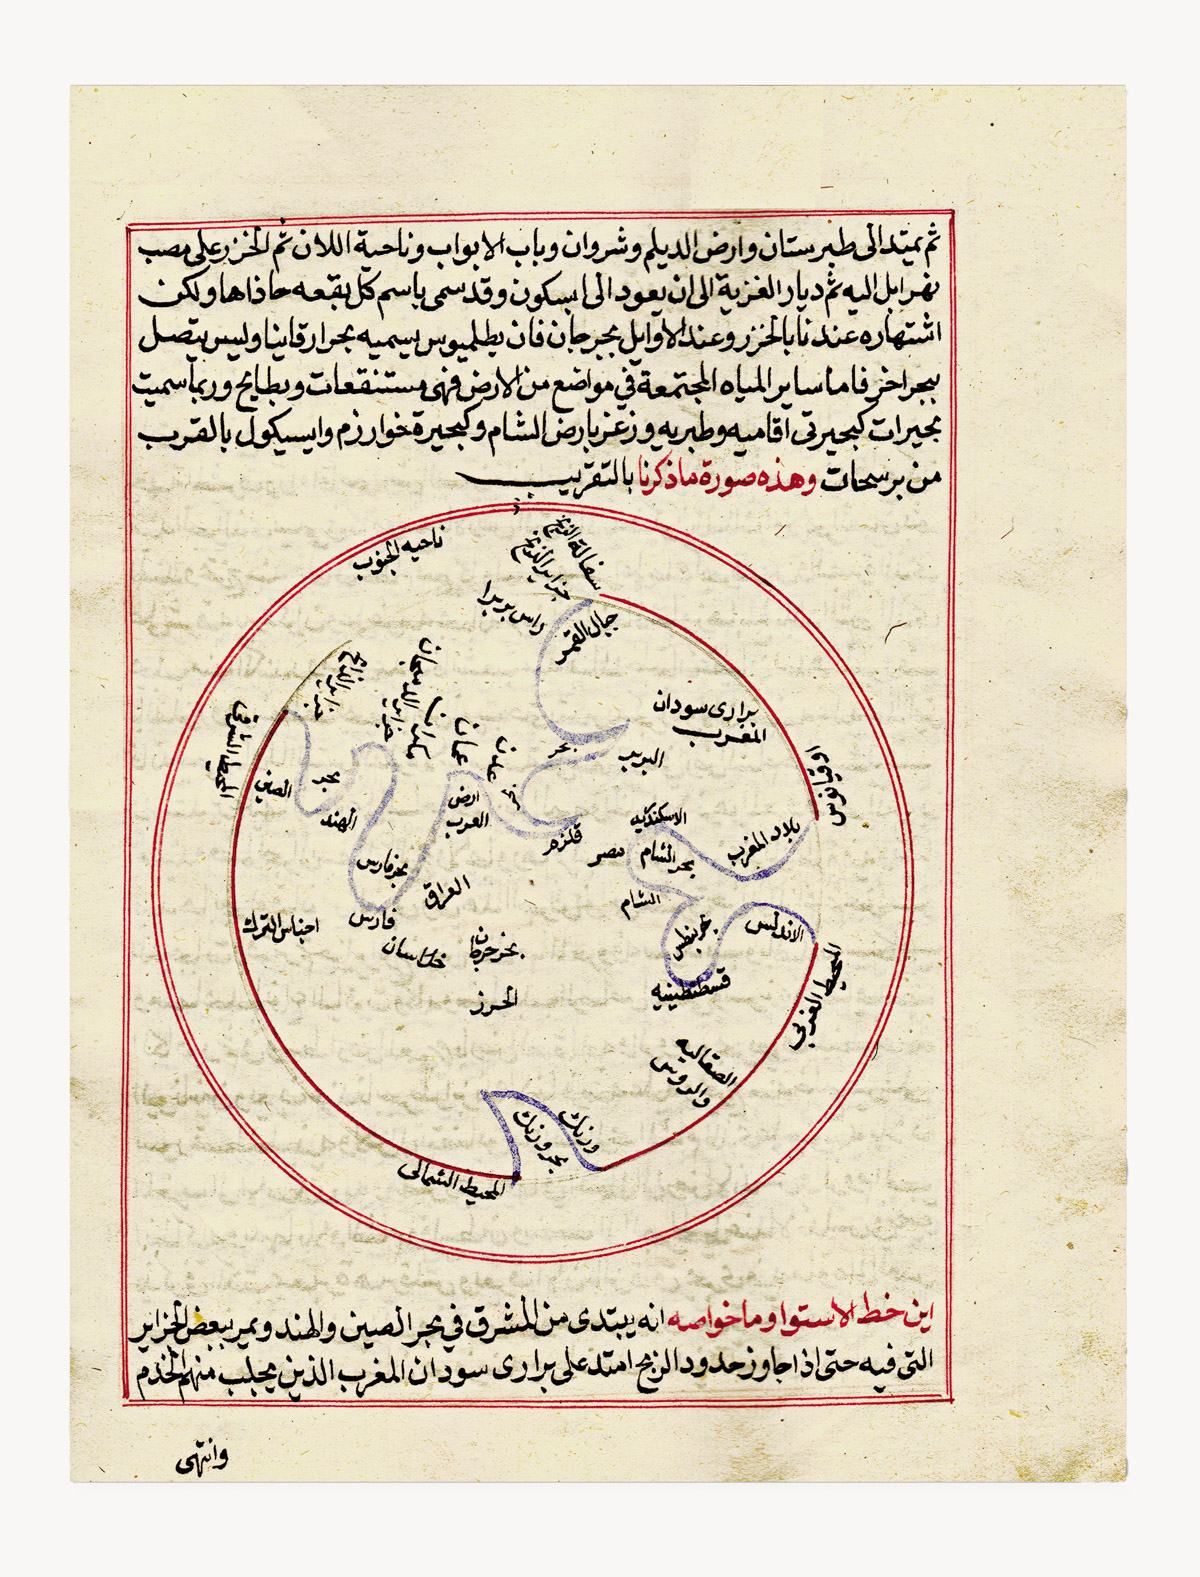 ثم يمتد الى طبرستان وارض الديلم وشروان وباب الابواب وناحية اللان ثم الخزر على مصب
نهر اتل اليه ثم ديار الغزية الى ان يعود الى ابسكون وقد سمى باسم كل بقعه حاذاها ولكن
اشتهاره عندنا بالخزر وعند الاوايل بجرجان فان بطلميوس يسميه بحر ارقانيا وليس يتصل
ببحر اخر فاما ساير المياه المجتمعة في مواضع من الارض فهى مستنقعات وبطايح وربما سميت
بحيرات كبحيرتى افاميه وطبريه وزغر بارض الشام وكبحيرة خوارزم وايسيكول بالقرب
من برسحان وهذه صورة ماذكرنا بالتقريب
ناحيه الجنوب
سفالة الزنج
جزاير الزنج
راس بربرا
جبال القمر
جزاير الزابج
جزاير الديبجان
مكران
عمان
عدن
برارى سودان
المغرب
البربر
بحر
المحيط الشرقى
الصين
بحر
الهند
ارض
العرب
قلزم
الاسكندريه
بلاد المغرب
اوقيانوس
بحر فارس
العراق
مصر
بحر الشام
الشام
فارس
اجناس الترك
خراسان
بحر جرجان
الخزر
بحر بنطس
الاندلس
قسطنطينيه
المحيط الغربي
الصقالبه
والروس
ورنك
بحر ورنك
المحيط الشمالى
اين خط الاستوا وما خواصه انه يبتدى من المشرق في بحر الصين والهند ويمر ببعض الجزاير
التى فيه حتى اذا جاوز حدود الزنج امتد على برارى سودان المغرب الذين يجلب منهم الخدم
وانتهى